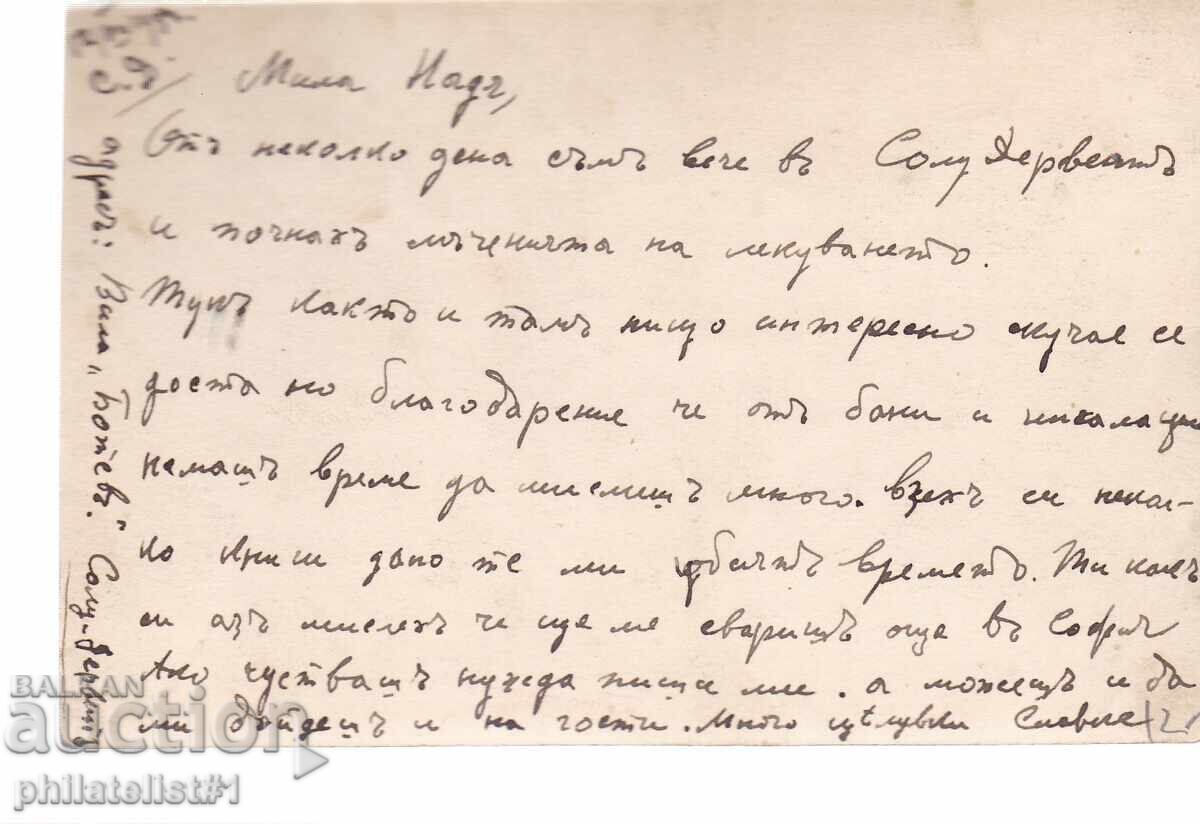 Мила Надя,
Отъ неколко дена съмъ вече въ Солу Дервентъ
и почнахъ мъченията на лекуването.
Тукъ както и тамъ нищо интересно скучае се
доста но благодарение че отъ бани и инхалации
немашъ време да мислишъ много. Взехъ си некол-
ко книги дано те ми убиятъ времето. Ти каква
си азъ мислехъ че ще ме сваришъ още въ София
Ако чувствашъ нужда пиши ми. а можешъ и да
ми дойдешъ и на гости. Много целувки
адресъ: Вила „Ботевъ“ Солу-Дервентъ
BALKAN
auction
philatelist#1